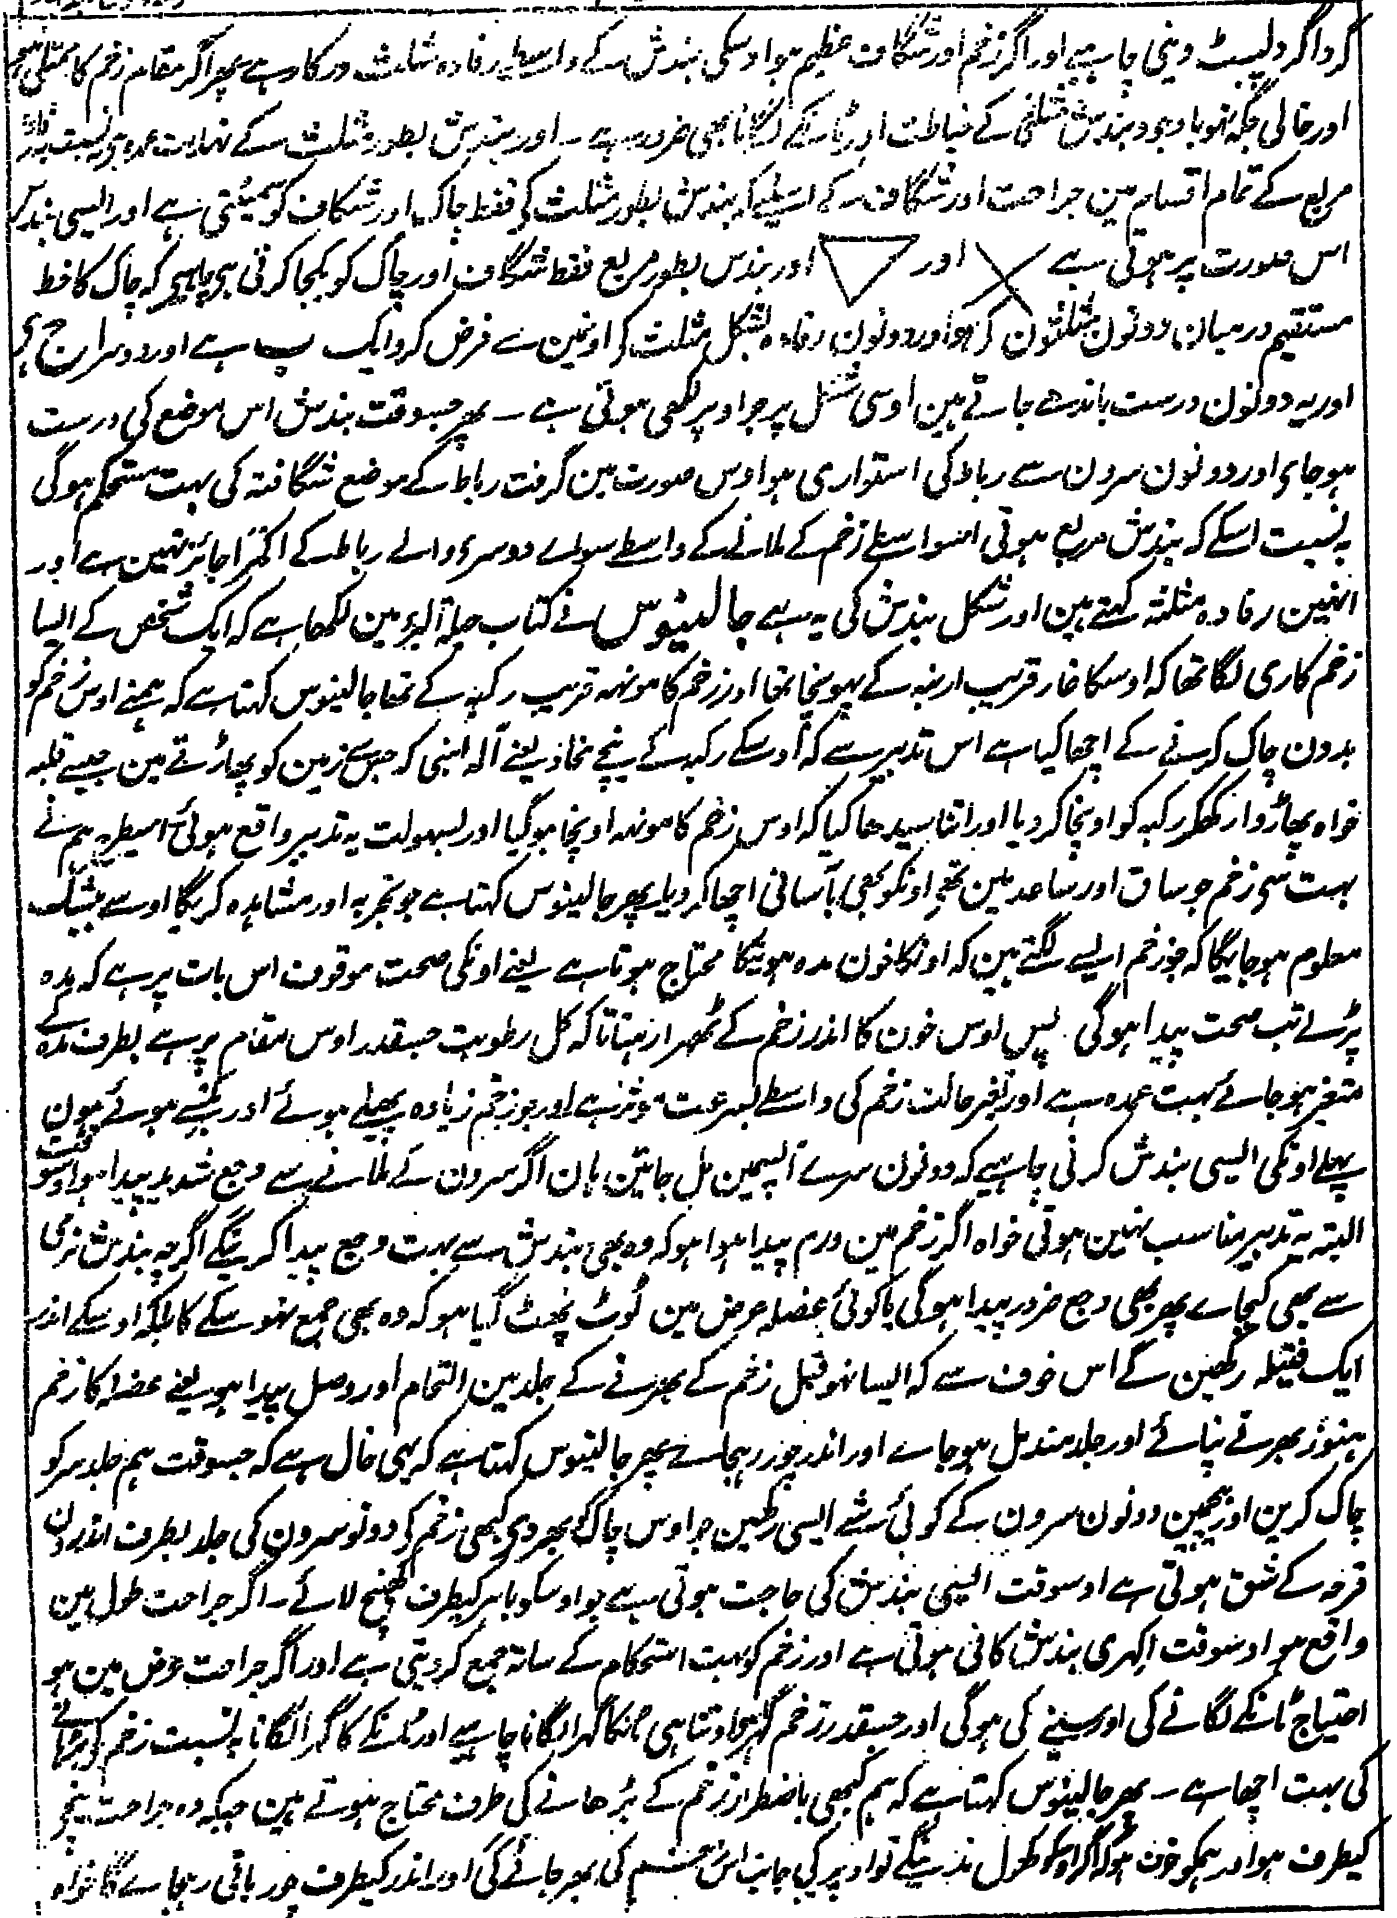 گرداگرد لپیٹ دینی چاہیے اور اگر زخم اور شگاف عظیم ہو اوسکی بندش کے واسطے رفادہ مثلث درکار ہے پھر اگر مقام زخم کا ممتلی ہو
اور خالی جگہ نہو باوجود بندش مثلثی کے خیاطت اور ٹانکے لگانا بھی ضرور ہے ۔ اور بندش بطور مثلث کے نہایت عمدہ ہی بہ نسبت
مربع کے تمام اقسام مین جراحت اور شگاف کے اسلیے کہ بندش بطور مثلث کی فقط چاک اور شگاف کو سمیٹتی ہے اور ایسی بندش
اس صورت پر ہوتی ہے اور اور بندش بطور مربع فقط شگاف اور چاک کو یکجا کرتی ہی چاہیے کہ چاک کا خط
مستقیم درمیان دونون مثلثون کے ہو اور دونون رفادہ بشکل مثلث کے اونمین سے فرض کرو ایک ب ہے اور دوسرا ح ہی
اور یہ دونون درست باندھے جاتے ہین اوسی شکل پر جو اوپر لکھی ہوئی ہے ۔ پھر جسوقت بندش اس موضع کی درست
ہو جاے اور دونون سرون سے رباط کی استواری ہو اوس صورت مین گرفت رباط کے موضع شگافتہ کی بہت مستحکم ہوگی
بہ نسبت اسکے کہ بندش مربع ہوتی اسواسطے زخم کے ملانے کے واسطے سواے دوسرے والے رباط کے اکثر اجائز نہین ہے اور
انہین رفادہ مثلثہ کہتے ہین اور شکل بندش کی یہ ہے جالینوس نے کتاب حیلۃ البرء مین لکھا ہے کہ ایک شخص کے ایسا
زخم کاری لگا تھا کہ اوسکا غار قریب اربیہ کے پہونچا تھا اور زخم کا مونہہ قریب رکبہ کے تھا جالینوس کہتا ہے کہ ہمنے اوس زخم کو
بدون چاک کرنے کے اچھا کیا ہے اس تدبیر سے کہ اوسکے رکبہ کے نیچے مخاذ یعنے آلہ آہنی کہ جس سے زمین کو پھاڑتے ہین جیسے قلبہ
خواہ پھاڑوا رکھکر رکبہ کو اونچا کر دیا اور اتنا سیدھا کیا کہ اوس زخم کا مونہہ اونچا ہو گیا اور بسہولت یہ تدبیر واقع ہوئی اسیطرح ہم نے
بہت سی زخم جو ساق اور ساعد مین تھے اونکو بھی بآسانی اچھا کر دیا پھر جالینوس کہتا ہے جو تجربہ اور مشاہدہ کریگا اوسے بیشک
معلوم ہو جائیگا کہ جو زخم ایسے لگتے ہین کہ اونکا خون مدہ ہونیکا محتاج ہوتا ہے یعنے اونکی صحت موقوف اس بات پر ہے کہ مدہ
پڑ لے تب صحت پیدا ہوگی پس اوس خون کا اندر زخم کے ٹھہرا رہنا تاکہ کل رطوبت جسقدر اوس مقام پر ہے بطرف مدہ کے
متغیر ہو جائے بہت عمدہ ہے اور تغیر حالت زخم کی واسطے بسرعت موثر ہے اور جو زخم زیادہ پھیلے ہوئے اور پھٹے ہوئے ہون
پہلے اونکی ایسی بندش کرنی چاہیے کہ دونون سرے آپسمین مل جائین ہان اگر سرون کے ملانے سے وجع شدید پیدا ہو اوسوقت
البتہ یہ تدبیر مناسب نہین ہوتی خواہ اگر زخم مین ورم پیدا ہوا ہو کہ وہ بھی بندش سے بہت وجع پیدا کرینگے اگرچہ بندش نرمی
سے بھی کیجاے پھر بھی وجع ضرور پیدا ہوگی یا کوئی عضلہ عرض مین ٹوٹ پھٹ گیا ہو کہ وہ بھی جمع نہو سکے گا بلکہ اوسکے اندر
ایک فتیلہ رکھین گے اس خوف سے کہ ایسا نہو قبل زخم کے بھرنے کے جلد مین التحام اور وصل پیدا ہو یعنے عضلہ کا زخم
ہنوز بھرنے نپائے اور جلد مندمل ہو جاے اور اندر چور رہجاے پھر جالینوس کہتا ہے کہ یہی حال ہے کہ جسوقت ہم جلد سر کو
چاک کرین اور بیچمین دونون سرون کے کوئی شے ایسی رکھین جو اوس چاک کو بھر دی کبھی زخم کی دونو سرون کی جلد بطرف اندرون
قرحہ کے شق ہوتی ہے اوسوقت ایسی بندش کی حاجت ہوتی ہے جو اوسکو باہر کیطرف کھینچ لائے ۔ اگر جراحت طول مین
واقع ہو اوسوقت اکہری بندش کافی ہوتی ہے اور زخم کو بہت استحکام کے ساتھ جمع کر دیتی ہے اور اگر جراحت عرض مین ہو
احتیاج ٹانکے لگانے کی اور سینے کی ہوگی اور جسقدر زخم گہرا ہو اوتنا ہی ٹانکا گہرا لگانا چاہیے اور ٹانکے کا گہرا لگانا بہ نسبت زخم کی بڑہانے
کی بہت اچھا ہے ۔ پھر جالینوس کہتا ہے کہ ہم کبھی باضطرار زخم کے بڑھانے کی طرف محتاج ہوتے ہین جبکہ وہ جراحت نیچے
کیطرف ہو اور ہمکو خوف ہو کہ اگر اوسکو کھول ندینگے تو اوپر کی جانب اس زخم کی بھر جائے گی اور اندر کیطرف چور باقی رہجاے گا خواہ